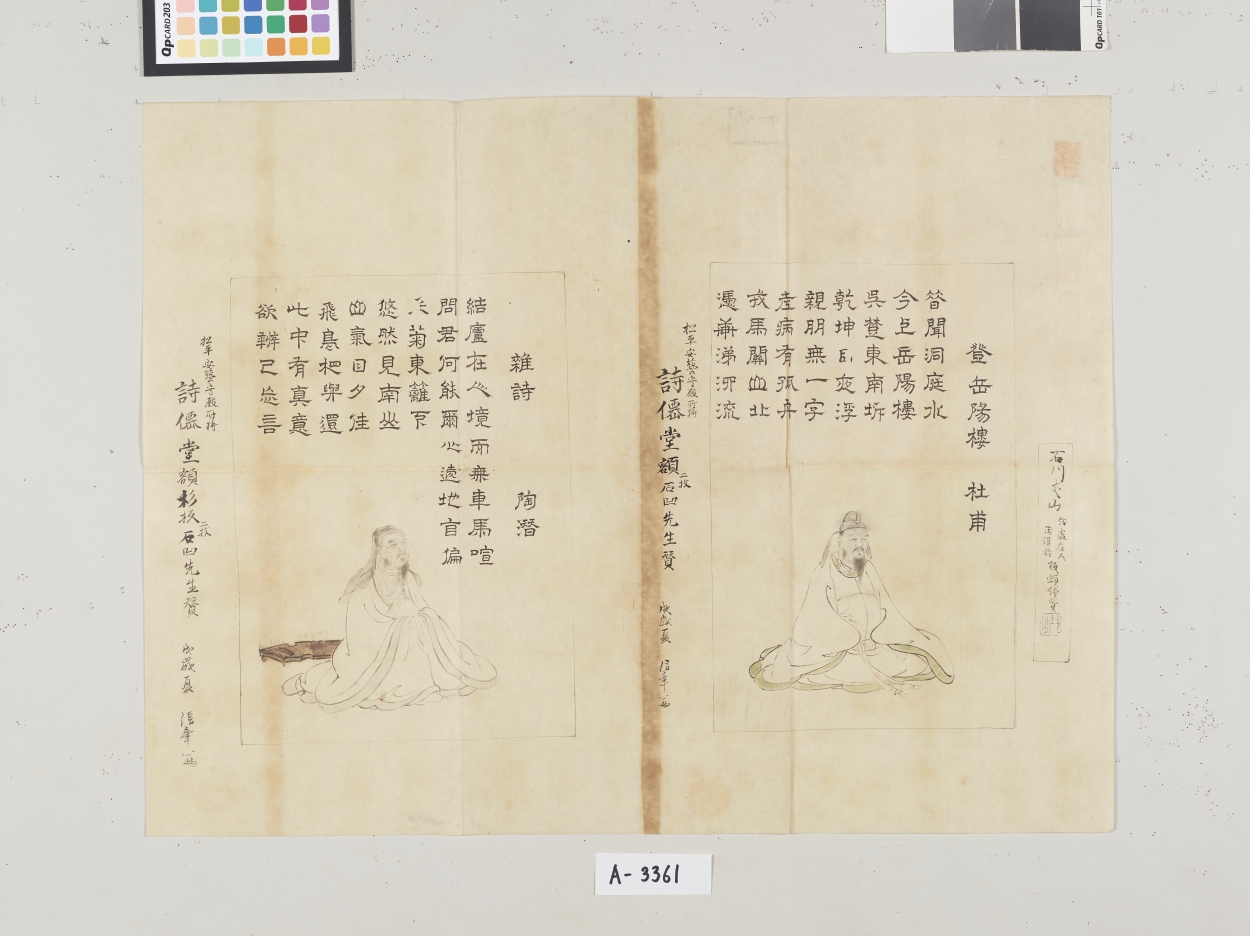 石川丈山
登岳陽樓 杜甫
昔聞洞庭水
今上岳陽樓
吳楚東南坼
乾坤日夜浮
親朋無一字
老病有孤舟
戎馬關山北
憑軒涕泗流
松平安藝守殿所持
詩僊堂額二枚石凹先生賛 戌歳夏
雜詩 陶潛
結廬在人境而無車馬喧
問君何能爾心遠地自偏
采菊東籬下
悠然見南山
山氣日夕佳
飛鳥相與還
此中有真意
欲辨已忘言
松平安藝守殿所持
詩僊堂額杉板二枚石凹先生賛 戌歳夏
QpCARD 203
QpCARD 101
A-3361